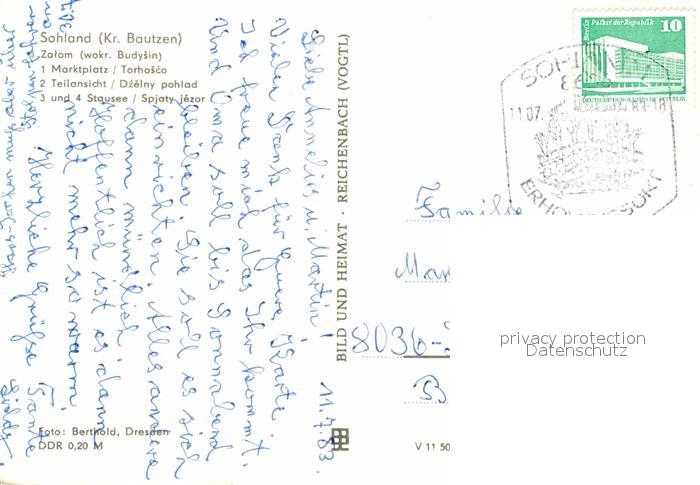 Sohland (Kr. Bautzen)
Załom (wokr. Budyšin)
1 Marktplatz / Torhošćo
2 Teilansicht / Dźělny pohlad
3 und 4 Stausee / Spjaty jězor
11.7.83.
Liebe Annelies u. Martin!
Vielen Dank für Euere Karte
Ich freue mich das Ihr kommt.
Und Oma soll bis Sonnabend
bleiben. Sie soll es sich
einrichten. Alles andere
dann mündlich.
Hoffentlich ist es dann
nicht mehr so warm.
Herzliche Grüße Tante
Foto: Berthold, Dresden
DDR 0,20 M
BILD UND HEIMAT · REICHENBACH (VOGTL)
V 11 50
Berlin Palast der Republik
10
DEUTSCHE DEMOKRATISCHE REPUBLIK
11.07.
ERHOLUNGSORT
Familie
Mar
8036-
privacy protection
Datenschutz